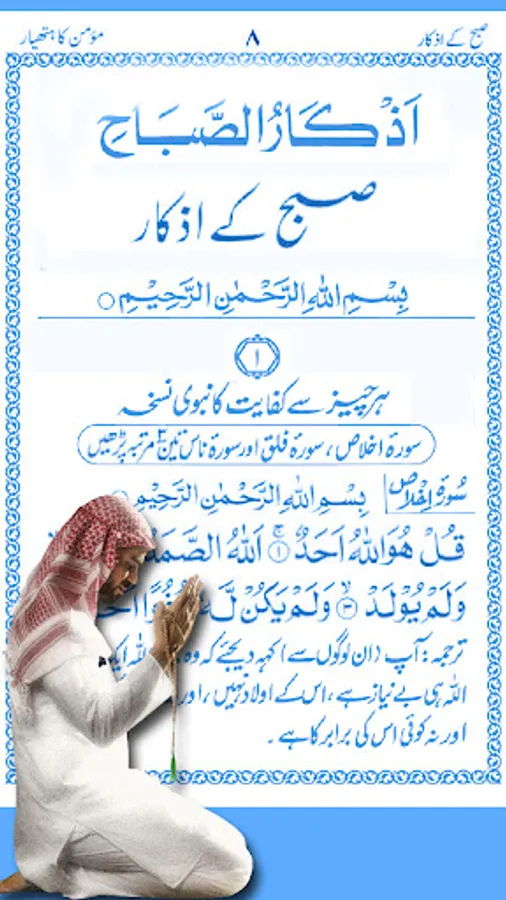 صبح کے اذکار ۸ مؤمن کا ہتھیار
اَذْكَارُ الصَّبَاحِ
صبح کے اذکار
بِسْمِ اللهِ الرَّحْمٰنِ الرَّحِيْمِ ○
۱
ہر چیز سے کفایت کا نبوی نسخہ
سورۂ اخلاص ، سورۂ فلق اور سورۂ ناس تین ۳ مرتبہ پڑھیں
سُورَۃُ اِخْلَاص بِسْمِ اللهِ الرَّحْمٰنِ الرَّحِيْمِ ○
قُلْ هُوَ اللهُ اَحَدٌ ۚ ۱ اَللهُ الصَّمَدُ
وَلَمْ يُوْلَدْ ۙ ۳ وَلَمْ يَكُنْ لَّهٗ
ترجمہ: آپ (ان لوگوں سے) کہہ دیجئے کہ وہ اللہ ایک
اللہ ہی بے نیاز ہے ، اس کے اولاد نہیں ، اور
اور نہ کوئی اس کی برابر کا ہے ۔